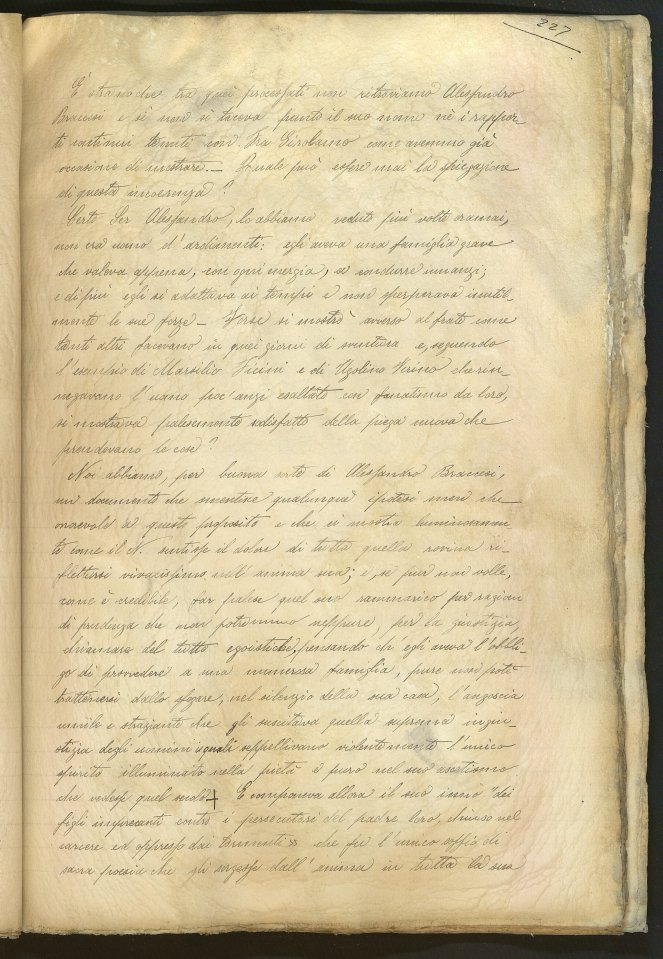 227
È strano che tra quei processati non ritroviamo Alessandro
Bracesi e sì non si taceva punto il suo nome nè i rappor-
ti continui tenuti con Fra Girolamo come avemmo già
occasione di mostrare. — Quale può essere mai la spiegazione
di questa incoerenza?
Certo Ser Alessandro, lo abbiamo veduto più volte oramai,
non era uomo d'ardimenti: egli aveva una famiglia grave
che valeva appena, con ogni energia, a condurre innanzi;
e di più egli si adattava ai tempi e non sperperava inutil-
mente le sue forze — Forse si mostrò avverso al frate come
tanti altri facevano in quei giorni di sventura e, seguendo
l'esempio di Marsilio Ficini e di Ugolino Verino che rin-
negavano l'uomo poc'anzi esaltato con fanatismo da loro,
si mostrava palesemente sodisfatto della piega nuova che
prendevano le cose?
Noi abbiamo, per buona sorte di Alessandro Bracesi,
un documento che smentisce qualunque ipotesi meno che
onorevole a questo proposito e che ci mostra luminosamen
te come il N. sentisse il dolore di tutta quella rovina ri-
flettersi vivacissimo nell'anima sua; e, se pur non volle,
come è credibile, far palese quel suo rammarico per ragioni
di prudenza che non potremmo neppure, per la giustizia,
chiamare del tutto egoistiche, pensando ch'egli aveva l'obbli-
go di provvedere a una numerosa famiglia, pure non potè
trattenersi dallo sfogare, nel silenzio della sua casa, l'angoscia
umile e straziante che gli suscitava quella suprema ingiu-
stizia degli uomini i quali seppellivano violentemente l'unico
spirito illuminato nella pietà e puro nel suo ascetismo
che vedesse quel secolo. + E compareva allora il suo inno "dei
figli imprecanti contro i persecutori del padre loro, chiuso nel
carcere ed oppresso dai tormenti» che fu l'unico soffio di
sacra poesia che gli sorgesse dall'anima in tutta la sua